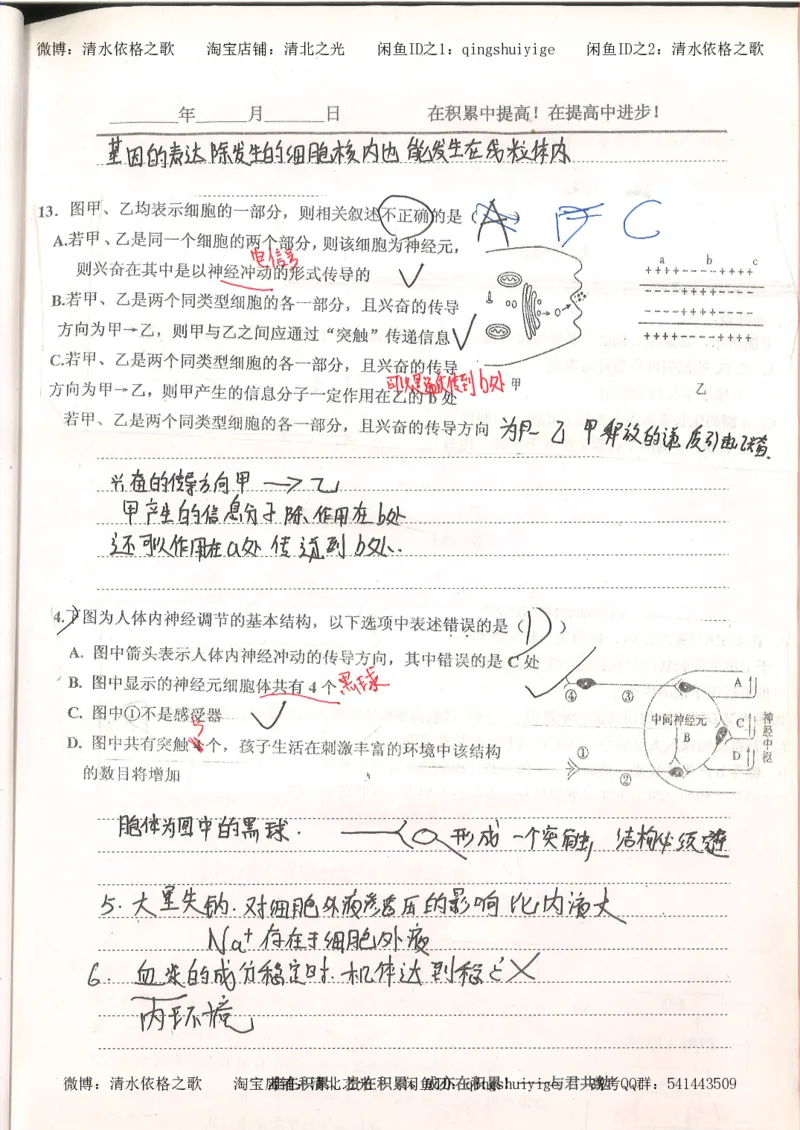 微博：清水依格之歌 淘宝店铺：清北之光 闲鱼ID之1：qingshuiyige 闲鱼ID之2：清水依格之歌
年 月 日 在积累中提高！在提高中进步！
基因的表达除发生的细胞核内也能发生在线粒体内
13. 图甲、乙均表示细胞的一部分，则相关叙述不正确的是（A） D C
A.若甲、乙是同一个细胞的两个部分，则该细胞为神经元，
电信号
则兴奋在其中是以神经冲动的形式传导的
B.若甲、乙是两个同类型细胞的各一部分，且兴奋的传导
方向为甲→乙，则甲与乙之间应通过“突触”传递信息
C.若甲、乙是两个同类型细胞的各一部分，且兴奋的传导
方向为甲→乙，则甲产生的信息分子一定作用在乙的 B 处
传到b处
a b c
++++-----++++
-----++++-----
-----++++-----
++++-----++++
甲
乙
若甲、乙是两个同类型细胞的各一部分，且兴奋的传导方向 为甲-乙 甲释放的递质引起乙
兴奋的传导方向甲→乙
甲产生的信息分子除作用在b处
还可以作用在a处 传递到b处.
4.下图为人体内神经调节的基本结构，以下选项中表述错误的是（D）
A. 图中箭头表示人体内神经冲动的传导方向，其中错误的是 C 处
B. 图中显示的神经元细胞体共有 4 个 黑球
C. 图中①不是感受器
5
D. 图中共有突触 个，孩子生活在刺激丰富的环境中该结构
的数目将增加
④ ③ A
中间神经元
B C D
神经中枢
① ②
胞体为图中的黑球. 形成一个突触，结构必须连
5. 大量失钠. 对细胞外液渗透压的影响比内液大
Na+存在于细胞外液
6. 血浆的成分稳定时. 机体达到稳态×
内环境
微博：清水依格之歌 淘宝店铺：清北之光 闲鱼ID：qingshuiyige 与君共勉 QQ群：541443509